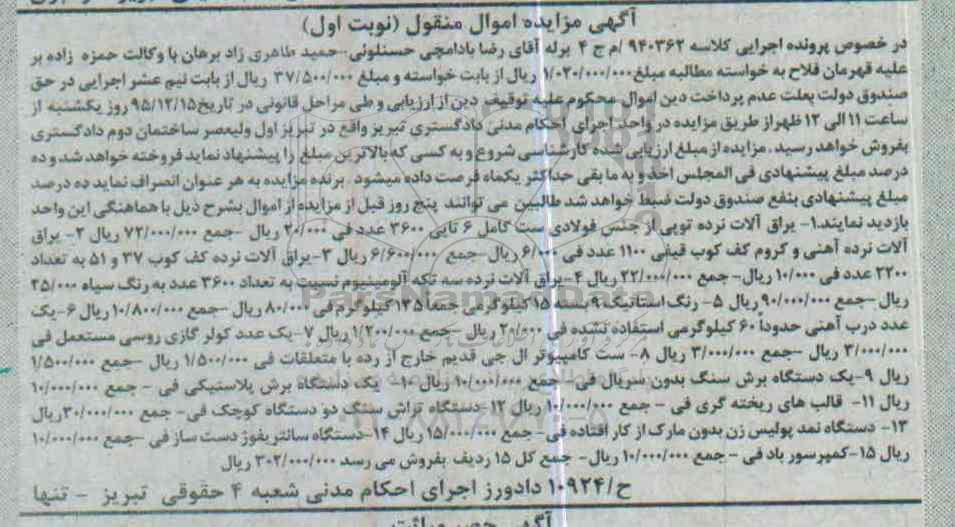 آگهی مزایده اموال منقول (نوبت اول)
در خصوص پرونده اجرایی کلاسه ۹۴۰۳۶۲ /م ج ۴ برله آقای رضا بادامچی حسنلوئی-حمید طاهری زاد برهان با وکالت حمزه زاده بر
علیه قهرمان فلاح به خواسته مطالبه مبلغ۱/۰۲۰/۰۰۰/۰۰۰ ریال از بابت خواسته و مبلغ ۳۷/۵۰۰/۰۰۰ ریال از بابت نیم عشر اجرایی در حق
صندوق دولت بعلت عدم پرداخت دین اموال محکوم علیه توقیف دین از ارزیابی و طی مراحل قانونی در تاریخ۹۵/۱۲/۱۵ روز یکشنبه از
ساعت ۱۱ الی ۱۲ ظهر از طریق مزایده در واحد اجرای احکام مدنی دادگستری تبریز واقع در تبریز اول ولیعصر ساختمان دوم دادگستری
بفروش خواهد رسید . مزایده از مبلغ ارزیابی شده کارشناسی شروع و به کسی که بالاترین مبلغ را پیشنهاد نماید فروخته خواهد شد و ده
درصد مبلغ پیشنهادی فی المجلس اخذ و به ما بقی حداکثر یکماه فرصت داده میشود . برنده مزایده به هر عنوان انصراف نماید ده درصد
مبلغ پیشنهادی بنفع صندوق دولت ضبط خواهد شد طالبین می توانند پنج روز قبل از مزایده از اموال بشرح ذیل با هماهنگی این واحد
بازدید نمایند.۱- یراق آلات نرده توپی از جنس فولادی ست کامل ۶ تایی ۳۶۰۰ عدد فی ۲۰/۰۰۰ ریال -جمع ۷۲/۰۰۰/۰۰۰ ریال ۲- یراق
آلات نرده آهنی و کروم کف کوب قیفی ۱۱۰۰ عدد فی ۶/۰۰۰ ریال-جمع ۶/۶۰۰/۰۰۰ ریال ۳-یراق آلات نرده کف کوب ۳۷ و ۵۱ به تعداد
۲۲۰۰ عدد فی ۱۰/۰۰۰ ریال-جمع ۲۲/۰۰۰/۰۰۰ ریال ۴-یراق آلات نرده سه تکه آلومینیوم نسبیت به تعداد ۳۶۰۰ عدد به رنگ سیاه ۲۵/۰۰۰
ریال -جمع ۹۰/۰۰۰/۰۰۰ ریال ۵- رنگ استاتیک ۹ بسته ۱۵ کیلوگرمی جمعا ۱۳۵ کیلوگرم فی ۸۰/۰۰۰ ریال -جمع ۱۰/۸۰۰/۰۰۰ ریال ۶-یک
عدد درب آهنی حدوداً ۶۰ کیلوگرمی استفاده نشده فی ۲۰/۰۰۰ ریال -جمع ۱/۲۰۰/۰۰۰ ریال ۷-یک عدد کولر گازی روسی مستعمل فی
۳/۰۰۰/۰۰۰ ریال -جمع ۳/۰۰۰/۰۰۰ ریال ۸- ست کامپیوتر ال جی قدیم خارج از رده با متعلقات فی ۱/۵۰۰/۰۰۰ ریال -جمع ۱/۵۰۰/۰۰۰
ریال ۹-یک دستگاه برش سنگ بدون سریال فی- جمع ۱۰/۰۰۰/۰۰۰ ریال ۱۰- یک دستگاه برش پلاستیکی فی - جمع ۱۰/۰۰۰/۰۰۰
ریال ۱۱- قالب های ریخته گری فی - جمع ۱۰/۰۰۰/۰۰۰ ریال ۱۲-دستگاه تراش سنگ دو دستگاه کوچک فی- جمع ۳۰/۰۰۰/۰۰۰ریال
۱۳- دستگاه نمد پولیس زن بدون مارک از کار افتاده فی- جمع ۱۵/۰۰۰/۰۰۰ ریال ۱۴-دستگاه سانتریفوژ دست ساز فی -جمع ۱۰/۰۰۰/۰۰۰
ریال ۱۵-کمپرسور باد فی - جمع ۱۰/۰۰۰/۰۰۰ ریال- جمع کل ۱۵ ردیف بفروش می رسد ۳۰۲/۰۰۰/۰۰۰ ریال
ح/۱۰۹۲۴ دادورز اجرای احکام مدنی شعبه ۴ حقوقی تبریز - تنها